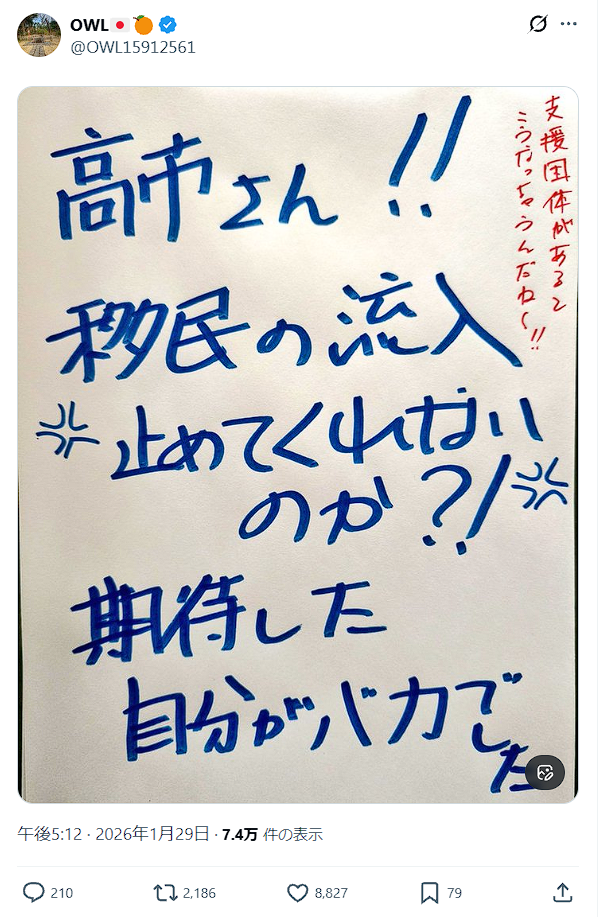 OWL🇯🇵🍊
@OWL15912561
支援団体があると
こうなっちゃうんだね〜!!
高市さん!!
移民の流入
止めてくれない
のか?!
期待した
自分がバカでし
た
午後5:12 · 2026年1月29日 · 7.4万 件の表示
210 2,186 8,827 79